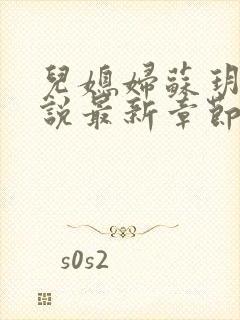 兒媳婦蘇玥
說最新章節
s0s2